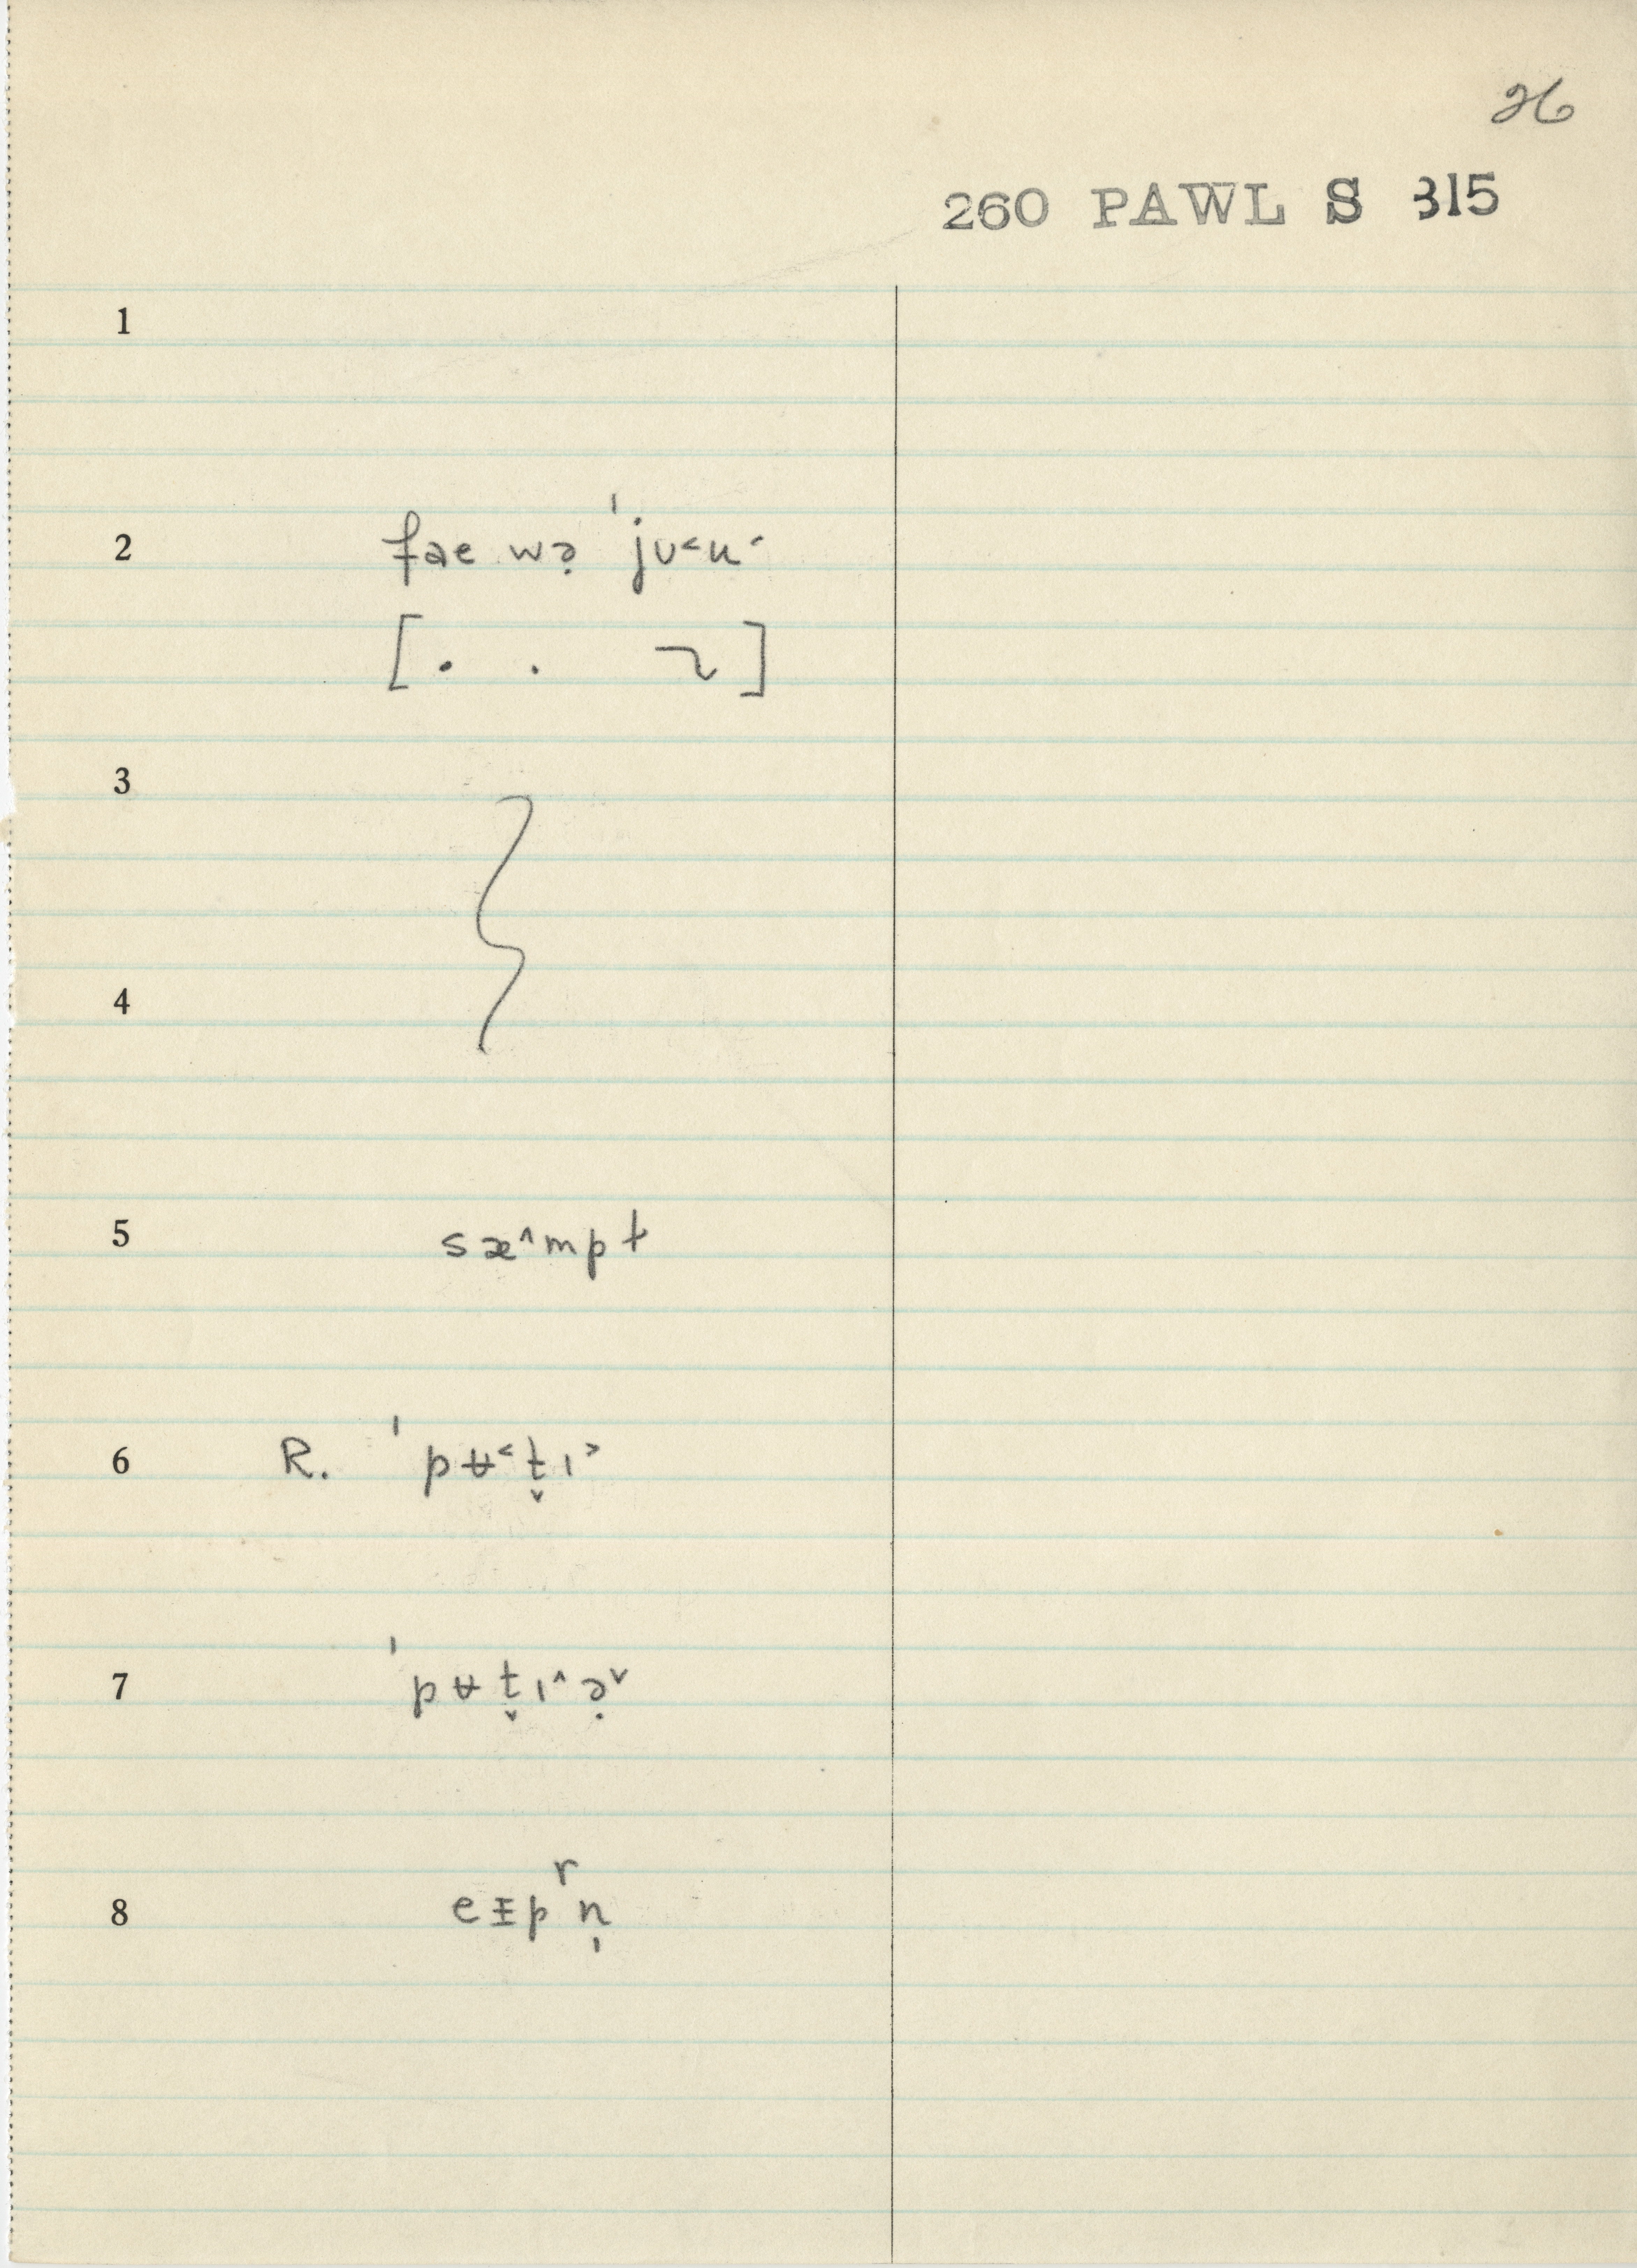 26
260 PAWL S 315
1
2 fae wə̣ ˈjʊ˂u˂
[. . ]
3
4
5 sæ˄mpt
6 R. ˈpʉ˂t̬ɪ˃
7 ˈpʉt̬ɪ˄ə̣˅
8 eᵻpʳn̩